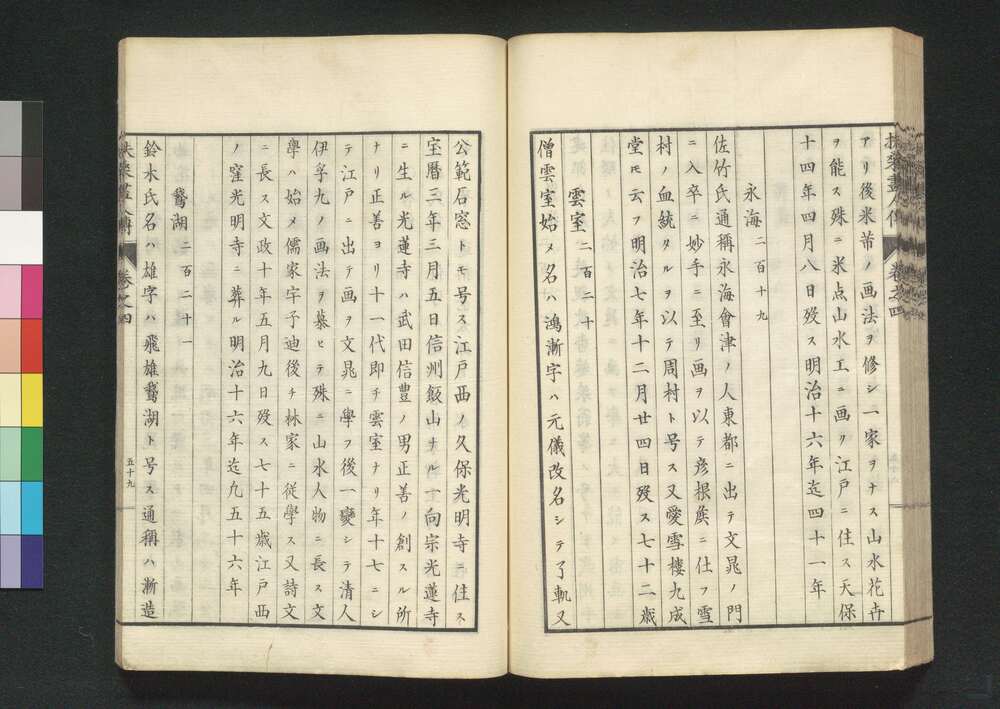 扶桑畫人傳 巻之四
アリ後米芾ノ画法ヲ修シ一家ヲナス山水花卉
ヲ能ス殊ニ米点山水工ニ画ク江戸ニ住ス天保
十四年四月八日歿ス明治十六年迄四十一年
永海 二百十九
佐竹氏通稱永海會津ノ人東都ニ出テ文晁ノ門
ニ入卒ニ妙手ニ至リ画ヲ以テ彦根矦ニ仕フ雪
村ノ血統タルヲ以テ周村ト号ス又愛雪樓九成
堂モ云フ明治七年十二月廿四日歿ス七十二歳
雲室 二百二十
僧雲室始メ名ハ鴻漸字ハ元儀改名シテ了軌又
公範石窓トモ号ス江戸西ノ久保光明寺ニ住ス
宝暦三年三月五日信州飯山ナル一向宗光蓮寺
ニ生ル光蓮寺ハ武田信豊ノ男正善ノ創スル所
ナリ正善ヨリ十一代即チ雲室ナリ年十七ニシ
テ江戸ニ出テ画ヲ文晁ニ學フ後一變シテ清人
伊孚九ノ画法ヲ慕ヒテ殊ニ山水人物ニ長ス文
學ハ始メ儒家宇子迪後チ林家ニ従學ス又詩文
ニ長ス文政十年五月九日歿ス七十五歳江戸西
ノ窪光明寺ニ葬ル明治十六年迄九五十六年
鵞湖 二百二十一
鈴木氏名ハ雄字ハ飛雄鵞湖ト号ス通稱ハ漸造
扶桑畫人傳 巻之四 五十九